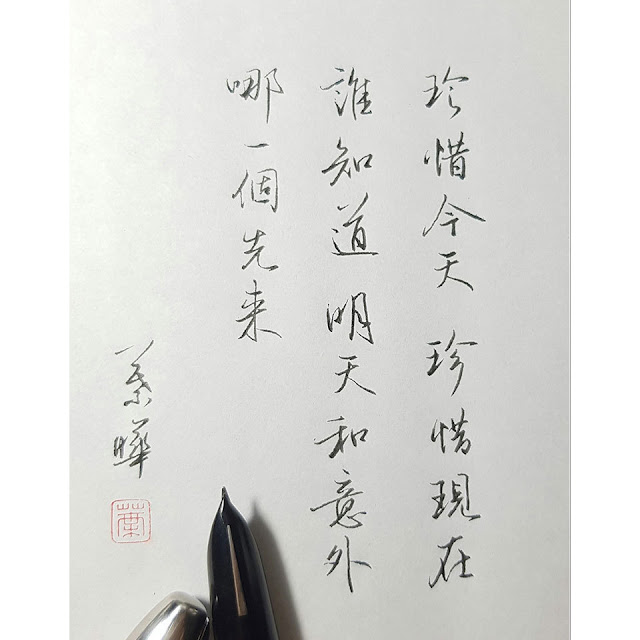 珍惜今天 珍惜現在
誰知道 明天和意外
哪一個先来
葉曄
葉